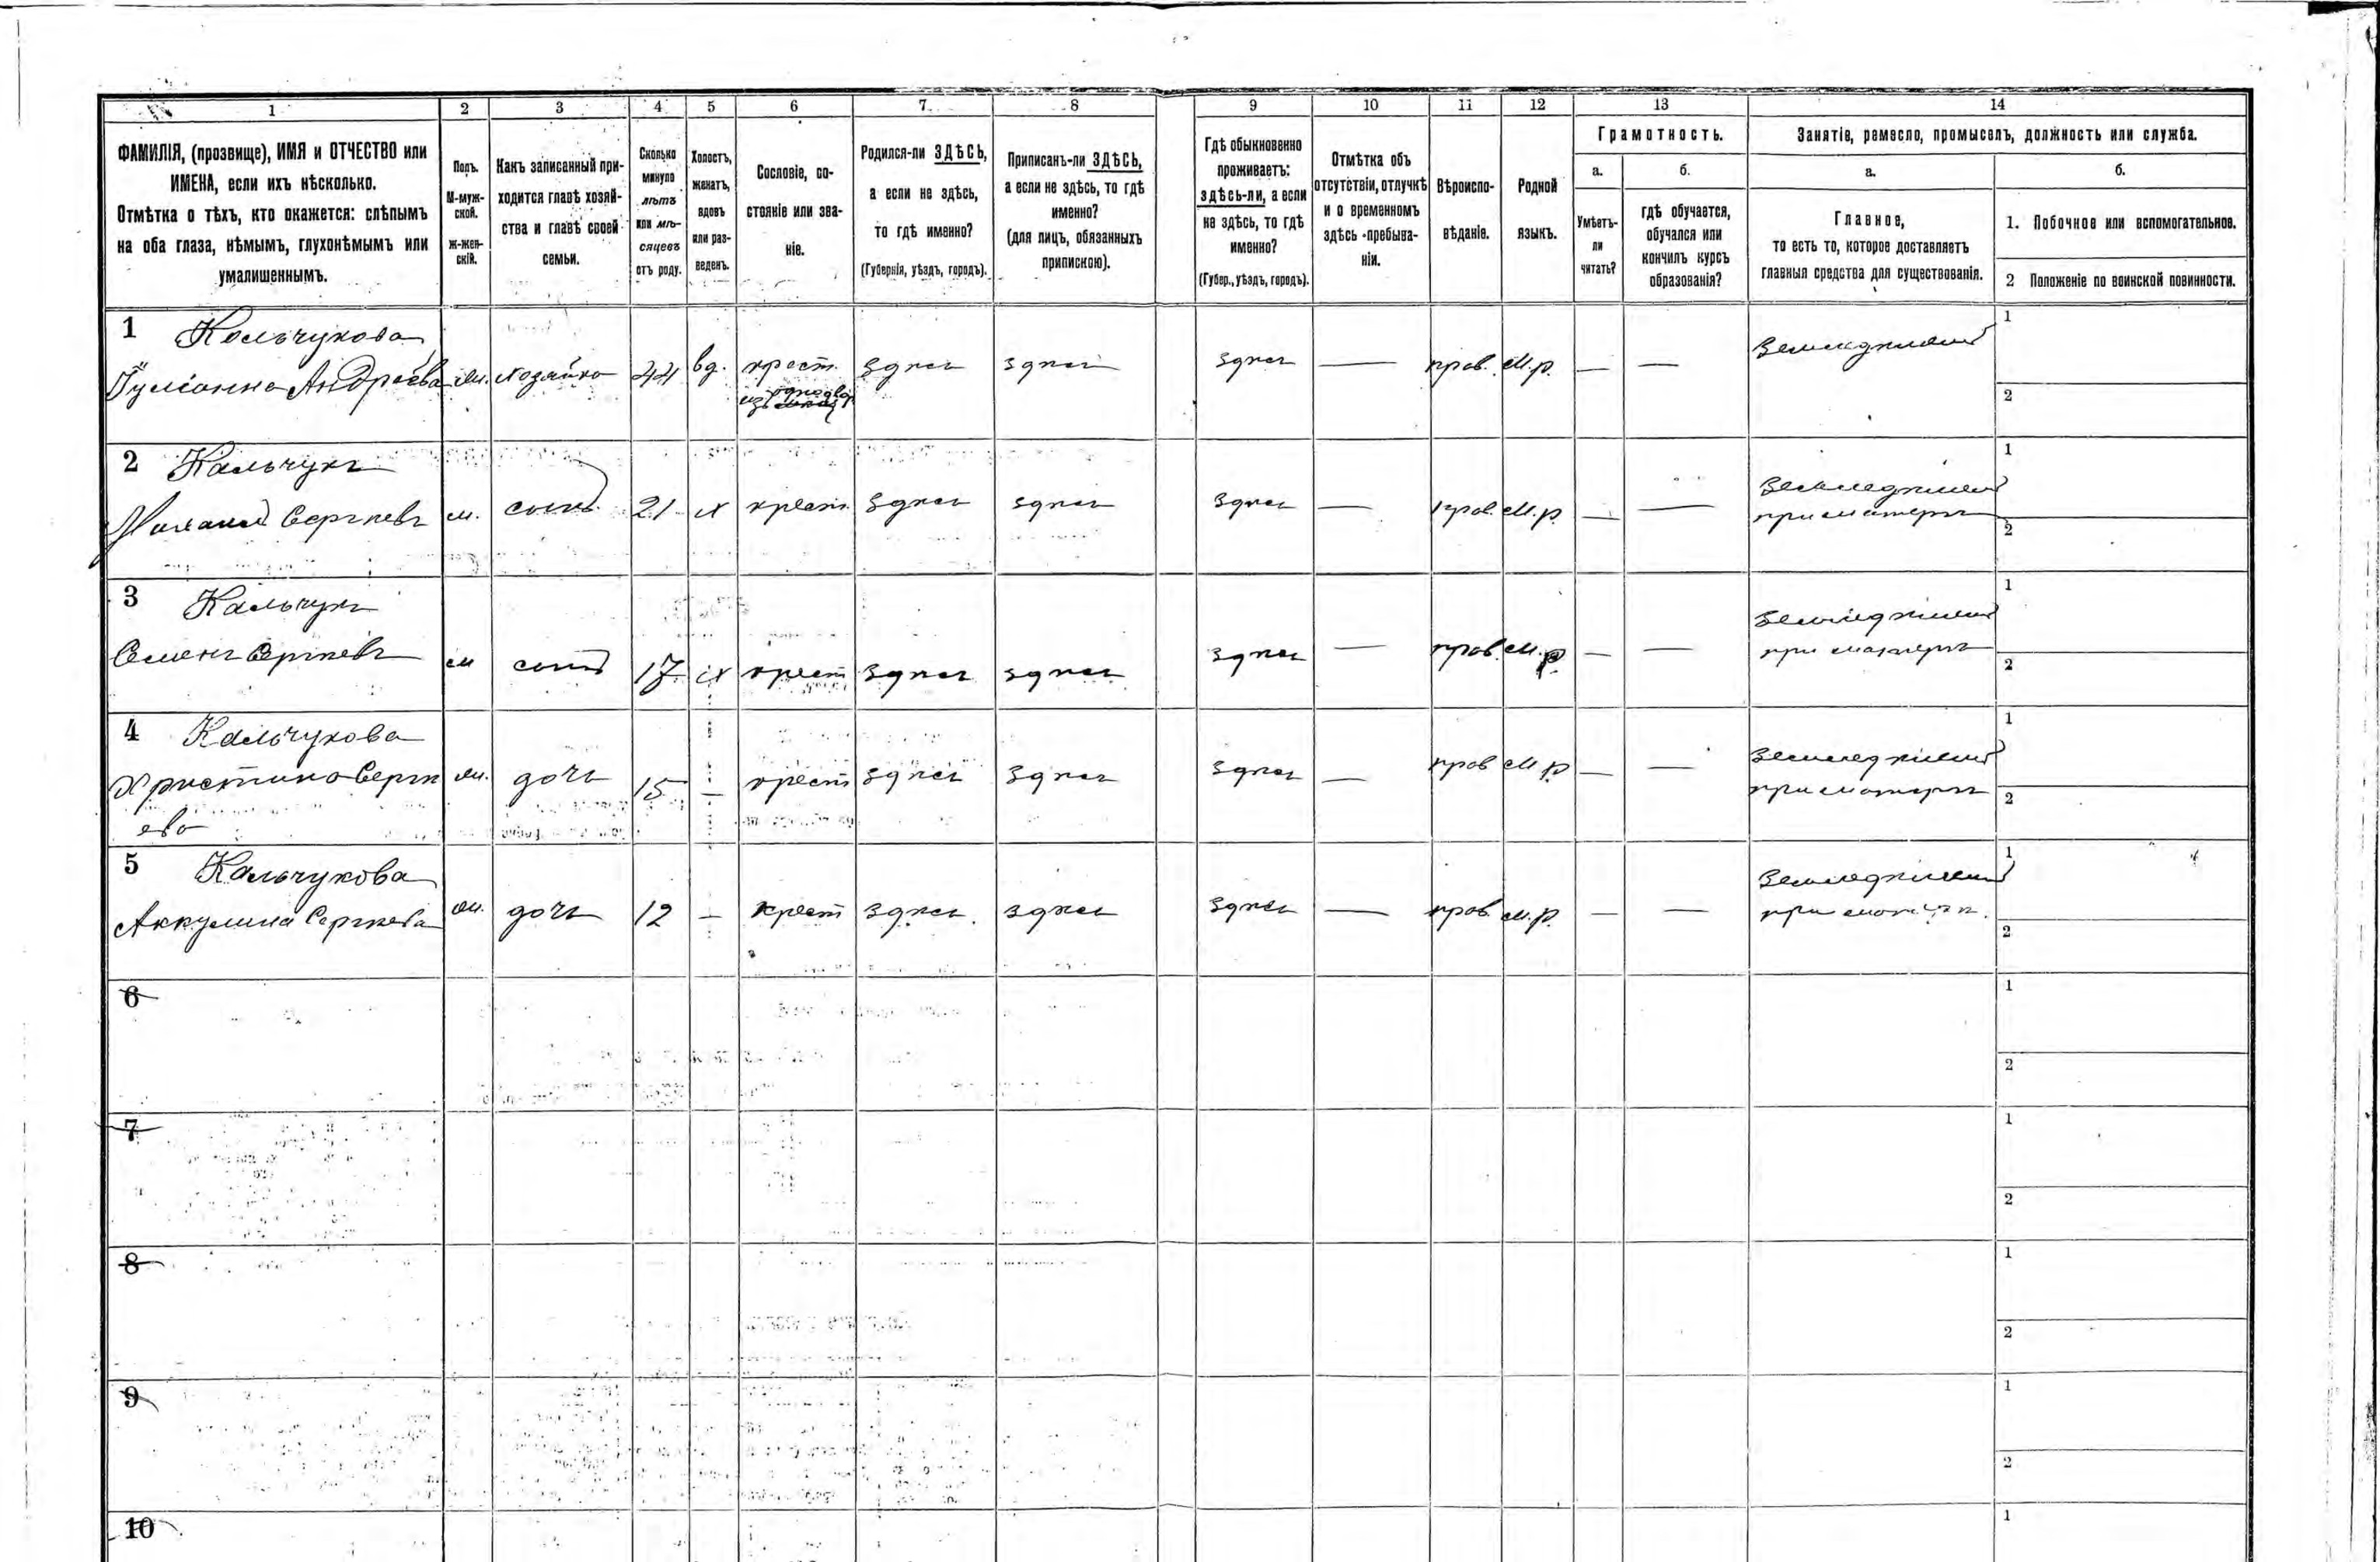 1 2 3 4 5 6 7 8 9 10 11 12 13 14
ФАМИЛІЯ, (прозвище), ИМЯ и ОТЧЕСТВО или
ИМЕНА, если ихъ нѣсколько.
Отмѣтка о тѣхъ, кто окажется: слѣпымъ
на оба глаза, нѣмымъ, глухонѣмымъ или
умалишеннымъ.
Полъ.
М-муж-
ской.
Ж-жен-
скій.
Какъ записанный при-
ходится главѣ хозяй-
ства и главѣ своей
семьи.
Сколько
минуло
лѣтъ
или мѣ-
сяцевъ
отъ роду.
Холостъ,
женатъ,
вдовъ
или раз-
веденъ.
Сословіе, со-
стояніе или зва-
ніе.
Родился-ли ЗДѢСЬ,
а если не здѣсь,
то гдѣ именно?
(Губернія, уѣздъ, городъ).
Приписанъ-ли ЗДѢСЬ,
а если не здѣсь, то гдѣ
именно?
(для лицъ, обязанныхъ
припискою).
Гдѣ обыкновенно
проживаетъ:
здѣсь-ли, а если
не здѣсь, то гдѣ
именно?
(Губер., уѣздъ, городъ).
Отмѣтка объ
отсутствіи, отлучкѣ
и о временномъ
здѣсь пребыва-
ніи.
Вѣроиспо-
вѣданіе.
Родной
языкъ.
Грамотность.
а.
Умѣетъ-
ли
читать?
б.
гдѣ обучается,
обучался или
кончилъ курсъ
образованія?
Занятіе, ремесло, промыселъ, должность или служба.
а.
Главное,
то есть то, которое доставляетъ
главныя средства для существованія.
б.
1. Побочное или вспомогательное.
2 Положеніе по воинской повинности.
1 Кольчукова
Іуліанна Андреева ж. хозяйка 44 вд. крест. здѣсь здѣсь здѣсь — прав. м.р. — — Земледѣліе
изъ однодвор
1
2
2 Кальчукъ
Сергѣевъ м. сынъ 21 х крест. здѣсь здѣсь здѣсь — прав. м.р. — — Земледѣліе
при матери
1
2
3 Кальчукъ
Семенъ Сергѣевъ м сынъ 17 х крест здѣсь здѣсь здѣсь — прав. м.р. — — Земледѣліе
при матери
1
2
4 Кальчукова
Христина Сергѣ ж. дочь 15 — крест здѣсь здѣсь здѣсь — прав м.р — — Земледѣліе
ева при матери
1
2
5 Кальчукова
Аккулина Сергѣева ж. дочь 12 — крест здѣсь здѣсь здѣсь — прав. м.р. — — Земледѣліе
при матери.
1
2
6
1
2
7
1
2
8
1
2
9
1
2
10
1